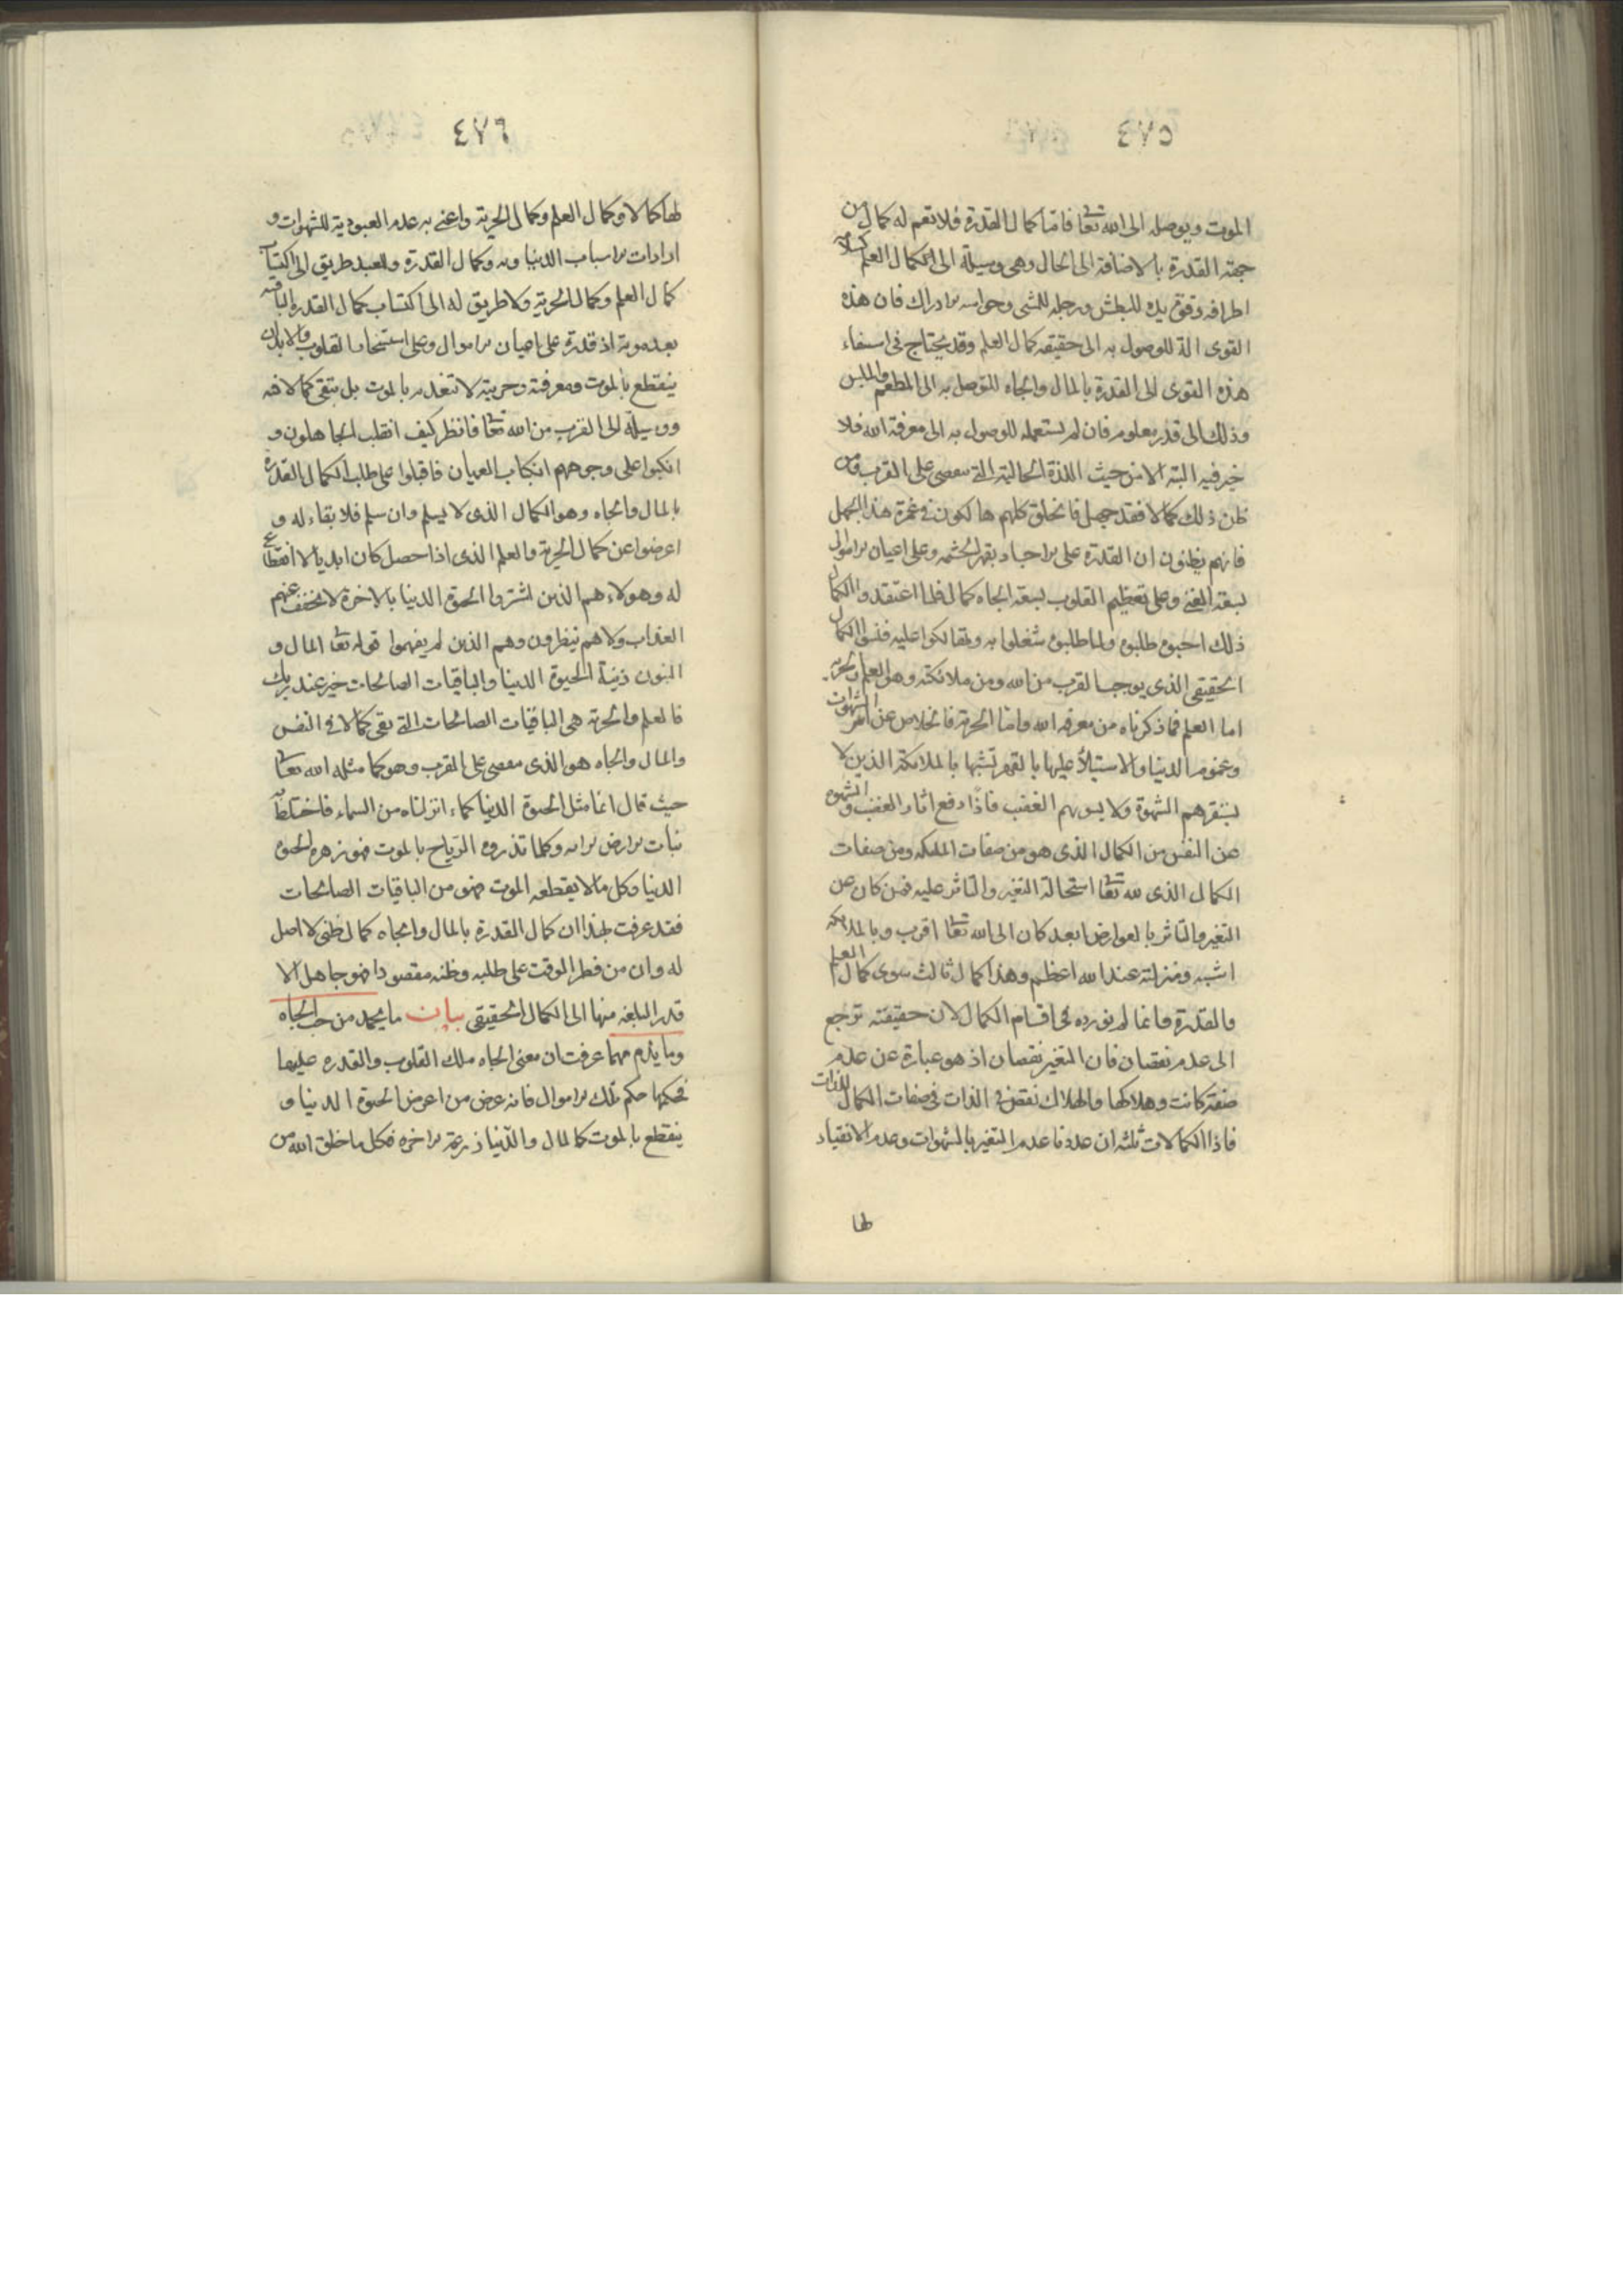 ٤٧٥
الموت ويوصله الى الله تعا فاما كمال القدرة فلا نعم له كمال من
جهة القدرة بالاضافة الى الحال وهي وسيلة الى الكمال العلم كسلامة
اطرافه وقوة يده للبطش ورجله للمشى وحواسه للادراك فان هذه
القوى الة للوصول به الى حقيقة كمال العلم وقد يحتاج فى استيفاء
هذه القوى الى القدرة بالمال والجاه للتوصل به الى المطعم والملبس
وذلك الى قدر معلوم فان لم يستعمله للوصول به الى معرفة الله فلا
خير فيه البتة الا من حيث اللذة الحالية التى سعصى على القرب ومن
ظن ذلك كمالا فقد جهل فالخلق كلهم هالكون فى غمرة هذا الجهل
فانهم يظنون ان القدرة على الاجساد بقهر الحشمه وعلى اعيان الاموال
بسعة الغنى وعلى تعظيم القلوب بسعة الجاه كمال فلما اعتقدوا الكمال
ذلك احبوه طلبوه ولما طلبوه شغلوا به وتهالكوا عليه فنسوا الكمال
الحقيقى الذى يوجب القرب من الله ومن ملائكته وهو العلم والحرية
اما العلم فما ذكرناه من معرفة الله واما الحرية فالخلاص عن اسر الشهوات
وغموم الدنيا والاستيلاء عليها بالقهر تشبها بالملائكة الذين لا
يستفزهم الشهوة ولا يستهويهم الغضب فاذا دفع اثار الغضب والشهوة
عن النفس من الكمال الذى هو من صفات الملئكه ومن صفات
الكمال الذى لله تعا استحالة التغير والتاثر عليه فمن كان عن
التغير والتاثر بالعوارض ابعد كان الى الله تعا اقرب وبالملائكه
اشبه ومنزلته عند الله اعظم وهذا كمال ثالث سوى كمال العلم
والقدرة وانما لم نورده فى اقسام الكمال لان حقيقته ترجع
الى عدم نقصان فان التغير نقصان اذ هو عبارة عن عدم
صفة كانت وهلاكها والهلاك نقص فى الذات فى صفات الكمال للذات
فاذا الكمالات ثلثه ان عددنا عدم التغير بالشهوات وعدم الانقياد
لها
٤٧٦
لها كمالا وكمال العلم وكمال الحرية واعنى به عدم العبودية للشهوات و
ارادات الاسباب الدنياويه وكمال القدرة وللعبد طريق الى اكتساب
كمال العلم وكمال الحرية ولا طريق له الى اكتساب كمال القدره الباقيه
بعد موته اذ قدرة على اعيان الاموال وعلى استسخار القلوب والابدان
ينقطع بالموت ومعرفته وحريته لا تنعدم بالموت بل تبقى كمالا فيه
ووسيلة الى القرب من الله تعا فانظر كيف انقلب الجاهلون و
انكبوا على وجوههم انكباب العميان فاقبلوا على طلب الكمال القدرة
بالمال والجاه وهو الكمال الذى لا يسلم وان سلم فلا بقاء له و
اعرضوا عن كمال الحرية والعلم الذى اذا حصل كان ابديا لا انقطاع
له وهولاء هم الذين اشتروا الحيوة الدنيا بالاخرة لا يخفف عنهم
العذاب ولا هم ينظرون وهم الذين لم يفهموا قوله تعا المال و
البنون زينة الحيوة الدنيا والباقيات الصالحات خير عند ربك
فالعلم والحرية هى الباقيات الصالحات التى تبقى كمالا فى النفس
والمال والجاه هو الذى سعصى على القرب وهو كما مثله الله تعا
حيث قال انما مثل الحيوة الدنيا كماء انزلناه من السماء فاختلط به
نبات الارض الايه وكلما تذروه الرياح بالموت فهو زهرة الحيوة
الدنيا وكل ما لا يقطعه الموت فهو من الباقيات الصالحات
فقد عرفت بهذا ان كمال القدرة بالمال والجاه كمال ظنى لا اصل
له وان من قصر الوقت على طلبه وظنه مقصودا فهو جاهل الا
قدر البلغه منها الى الكمال الحقيقى بيان ما يحمد من حب الجاه
وما يذم مهما عرفت ان معنى الجاه ملك القلوب والقدره عليها
فحكمها حكم تلك الاموال فانه عرض من اعراض الحيوة الدنيا و
ينقطع بالموت كالمال والدنيا مزرعة الاخره فكل ما خلق الله من